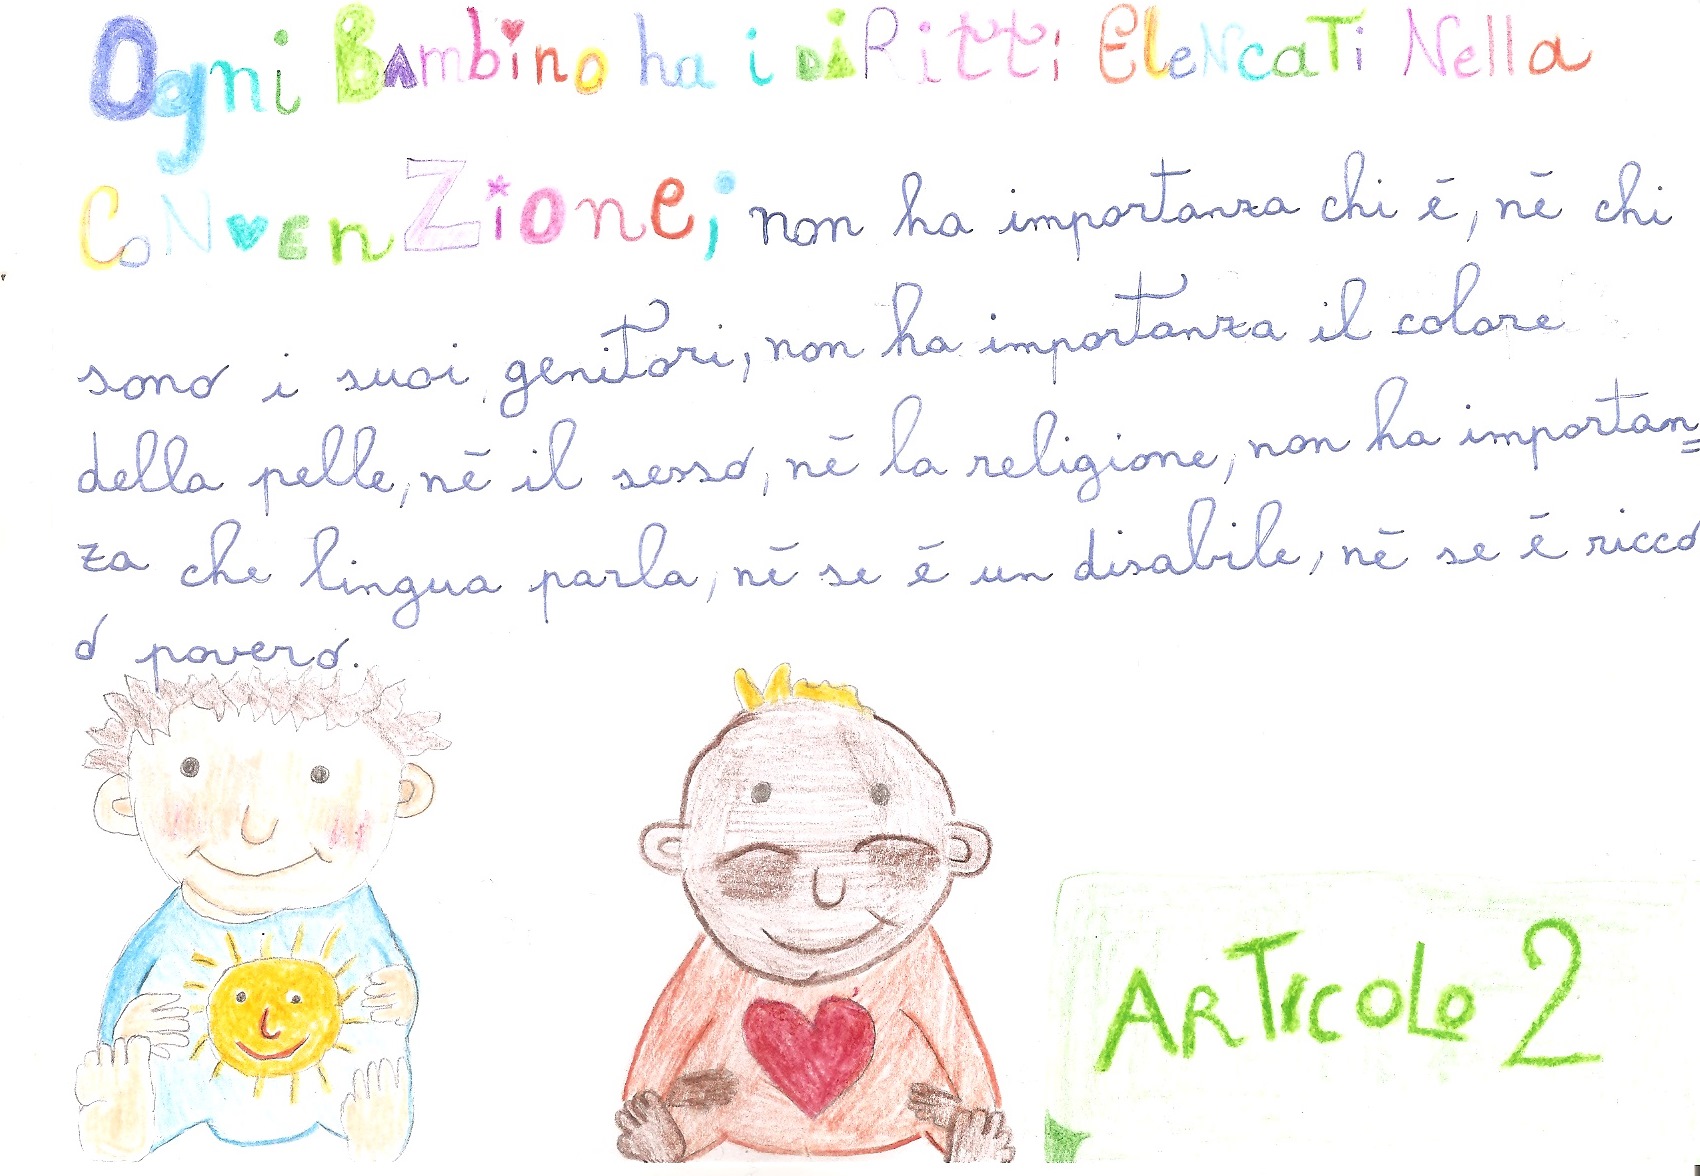 Ogni Bambino ha i diRitti EleNcaTi Nella
CoNvEnZione, non ha importanza chi é, né chi
sono i suoi genitori, non ha importanza il colore
della pelle, né il sesso, né la religione, non ha importan=
za che lingua parla, né se é un disabile, né se é ricco
o povero.
ARTICOLO 2